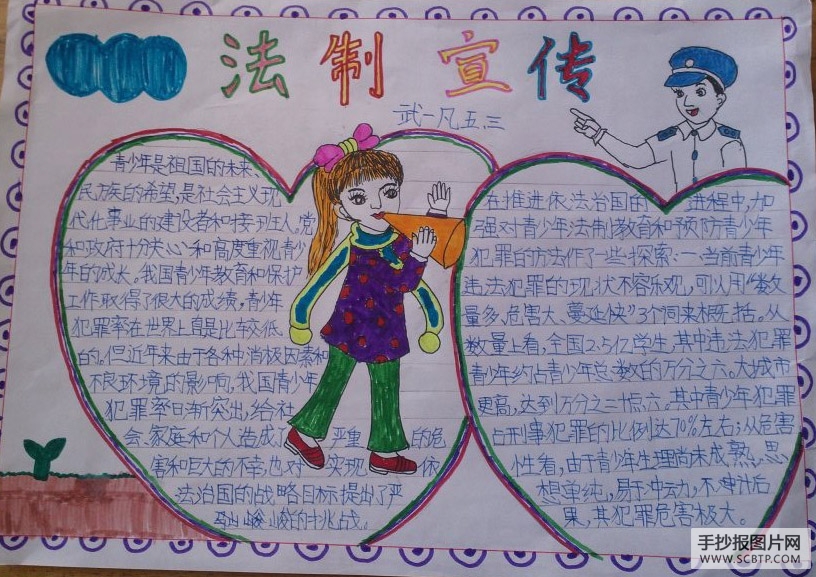 法制宣传
武一凡五.三
青少年是祖国的未来、
民族的希望,是社会主义现
代化事业的建设者和接班人。党
和政府十分关心和高度重视青少
年的成长。我国青少年教育和保护
工作取得了很大的成绩,青少年
犯罪率在世界上真是比较低
的。但近年来由于各种消极因素和
不良环境的影响,我国青少年
犯罪率日渐突出,给社
会、家庭和个人造成了严重的危
害和巨大的不幸,也对实现依
法治国的战略目标提出了严
峻的挑战。
在推进依法治国的进程中,加
强对青少年法制教育和预防青少年
犯罪的方法作了一些探索:一、当前青少年
违法犯罪的现状不容乐观,可以用“数
量多、危害大、蔓延快”3个词来概括。从
数量上看,全国2.5亿学生,其中违法犯罪
青少年约占青少年总数的万分之六。大城市
更高,达到万分之三十点六。其中青少年犯罪
占刑事犯罪的比例达70%左右;从危害
性看,由于青少年生理尚未成熟,思
想单纯,易于冲动,不计后
果,其犯罪危害极大。
手抄报图片网
WWW.SCBTP.COM